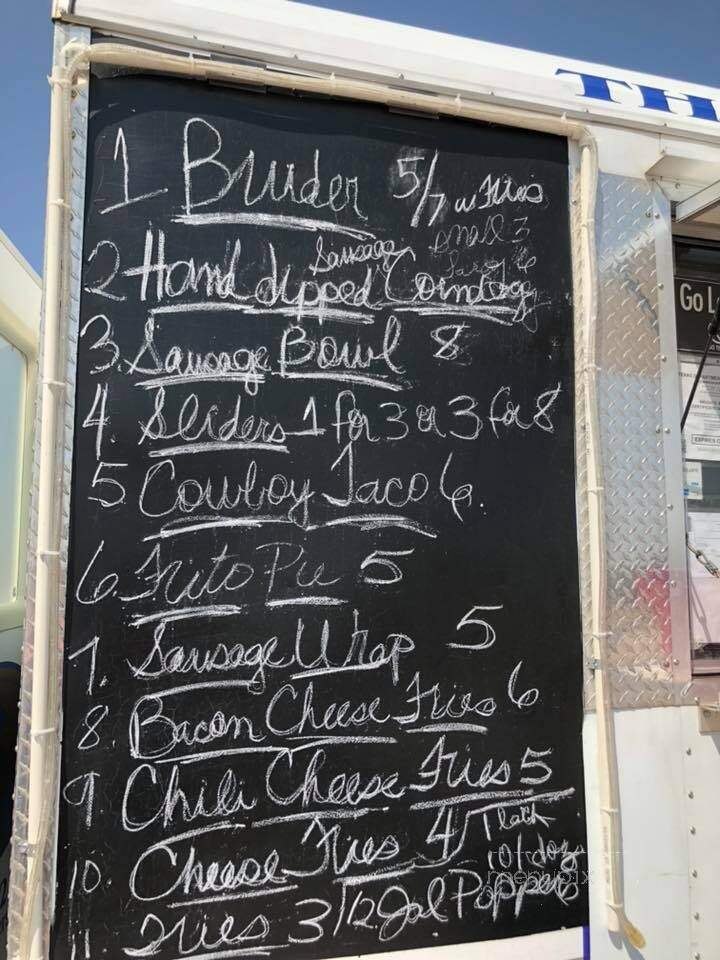 TH
1 Bruder 5/7 w Fries
2 Hand dipped Sausage Corndog small 3 Large 6
3. Sausage Bowl 8
4. Sliders 1 for 3 or 3 for 8
5 Cowboy Taco 6.
6. Frito Pie 5
7. Sausage Wrap 5
8. Bacon Cheese Fries 6
9 Chili Cheese Fries 5
10. Cheese Fries 4/ 1 each
10/doz
11. Fries 3/12 Jal Poppers
Go L
menupix